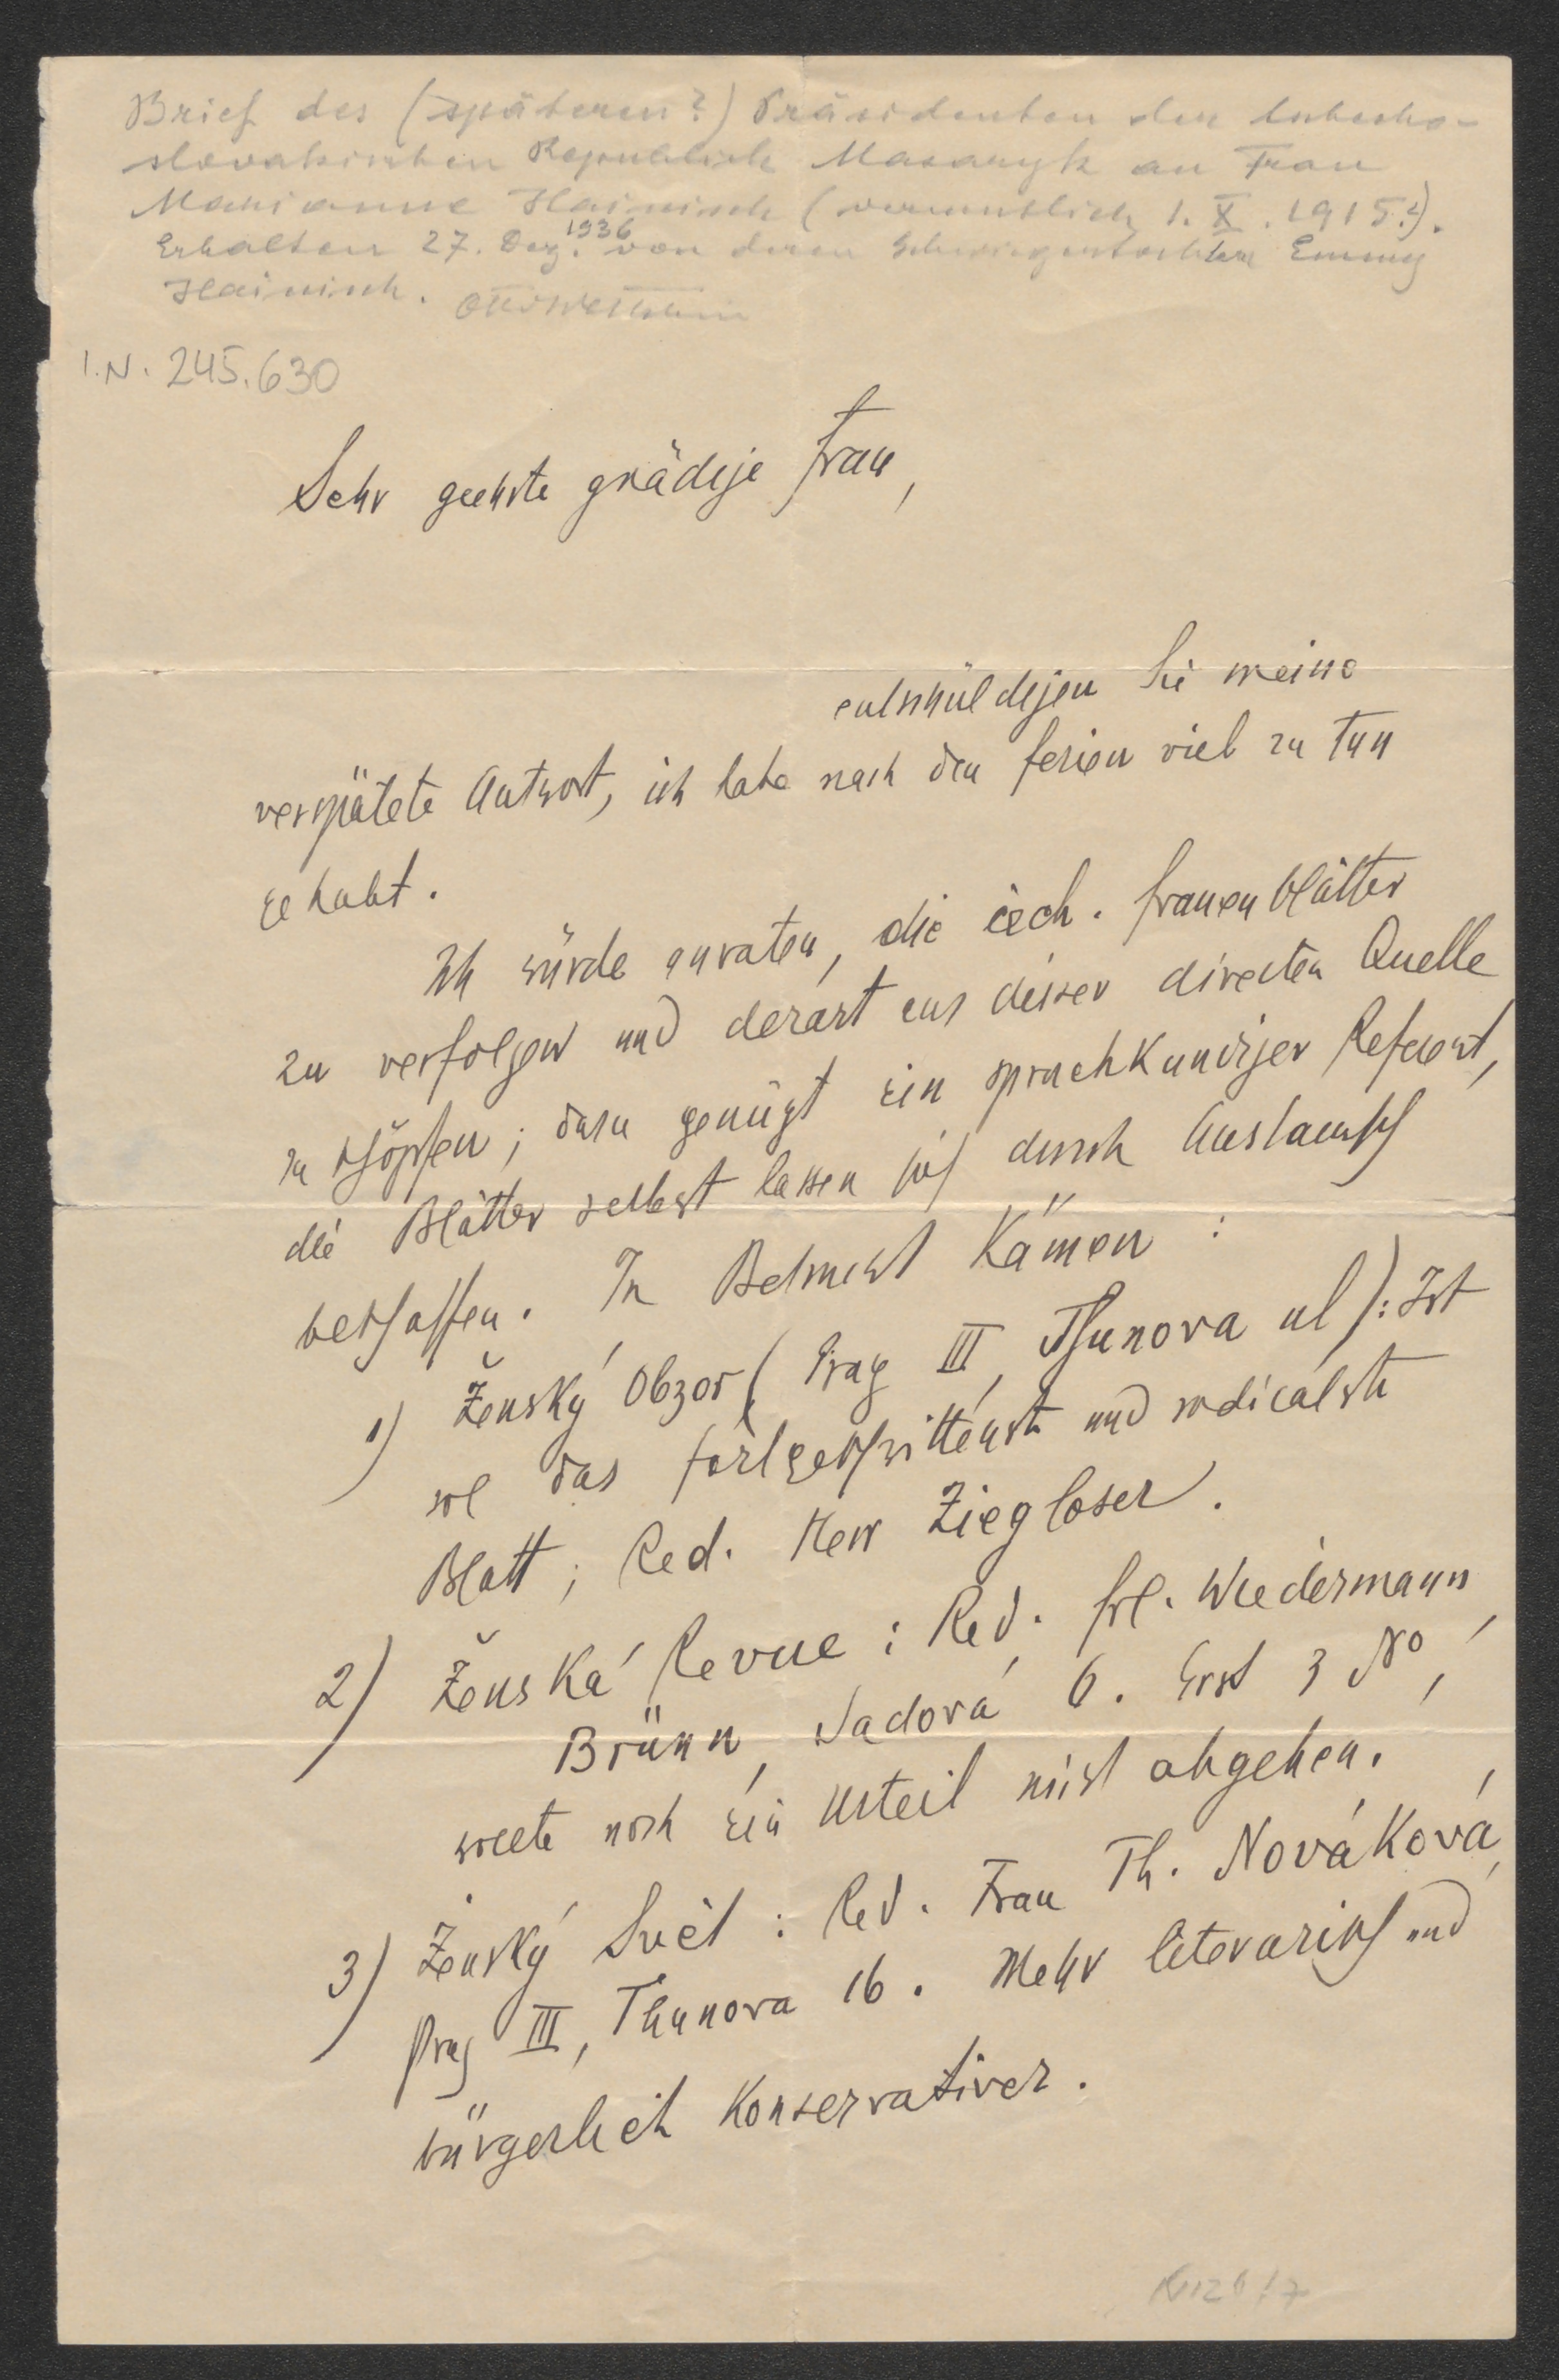 Brief des (späteren?) Präsidenten der tschecho-
slovakischen Republik Masaryk an Frau
Marianne Hainisch (vermutlich 1. X. 1915?).
Erhalten 27. Dez. 1936 von deren Schwiegertochter Emmy
Hainisch. Otto Wettstein
I.N. 245.630
Sehr geehrte gnädige Frau,
entschuldigen Sie meine
verspätete Antwort, ich habe nach den Ferien viel zu tun
gehabt.
Ich würde anraten, die čech. Frauenblätter
zu verfolgen und derart aus dieser directen Quelle
zu schöpfen; dazu genügt ein sprachkundiger Referent,
die Blätter selbst lassen sich durch Austausch
beschaffen. In Betracht kämen:
1) Ženský Obzor (Prag III, Thunova ul): Ist
wol das fortgeschrittenste und radicalste
Blatt; Red. Herr Ziegloser.
2) Ženská Revue: Red. Frl. Wiedermann,
Brünn, Sadová 6. Erst 3 No,
wollte noch ein Urteil nicht abgeben.
3) Ženský Svět: Red. Frau Th. Nováková,
Prag III, Thunova 16. Mehr literarisch und
bürgerlich konservativer.